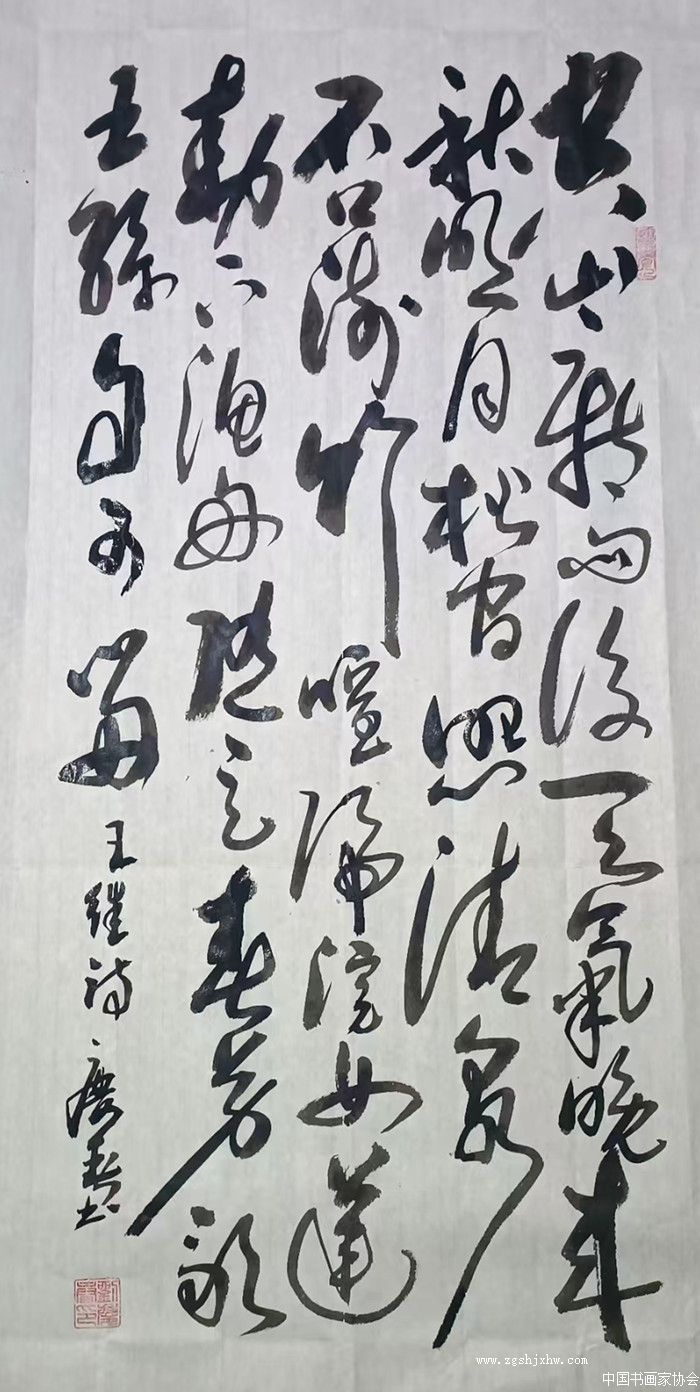 空山新雨後天氣晚来
秋明月松間照清泉
石流竹喧歸浣女蓮
動下漁舟随意春芳歇
王孫自可留 王維詩 慶春书
www.zgshjxhw.com
中国书画家协会